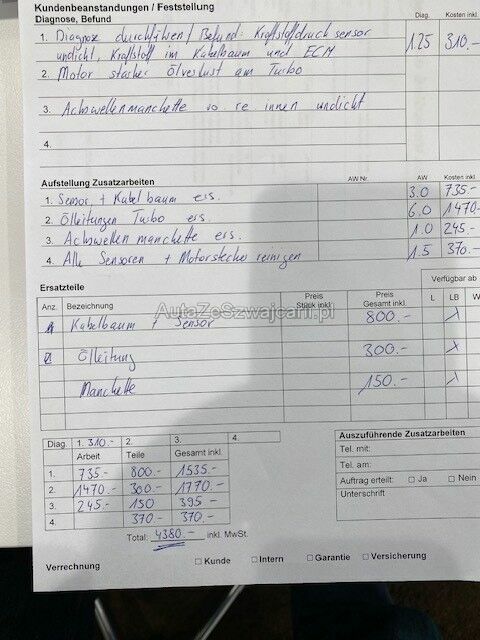 Kundenbeanstandungen / Feststellung
Diagnose, Befund Diag. Kosten inkl
1. Diagnose durchführen/Befund: Kraftstoffdrucksensor 1.25 310.-
undicht, Kraftstoff im Kabelbaum und ECM
2. Motor starker Ölverlust am Turbo
3. Achswellenmanchette vo re innen undicht
4.
Aufstellung Zusatzarbeiten AW Nr. AW Kosten inkl.
1. Sensor, + Kabelbaum ers. 3.0 735-
2. Ölleitungen Turbo ers. 6.0 1470-
3. Achswellen manchette ers. 1.0 245-
4. Alle Sensoren + Motorstecker reinigen 1.5 370.-
Ersatzteile Verfügbar ab
Anz. Bezeichnung Preis Stück inkl. Preis Gesamt inkl. L LB W
Kabelbaum + Sensor 800.-
Ölleitung 300.-
Manchette 150.-
AutaZeSzwajcarii.pl
Diag. 1. 310.- 2. 3. 4.
Arbeit Teile Gesamt inkl
1. 735- 800- 1535-
2. 1470.- 300- 1770.-
3. 245.- 150 395-
4. 370.- 370.-
Total: 4380.- inkl. MwSt.
Auszuführende Zusatzarbeiten
Tel. mit:
Tel. am:
Auftrag erteilt: Ja Nein
Unterschrift
Verrechnung Kunde Intern Garantie Versicherung